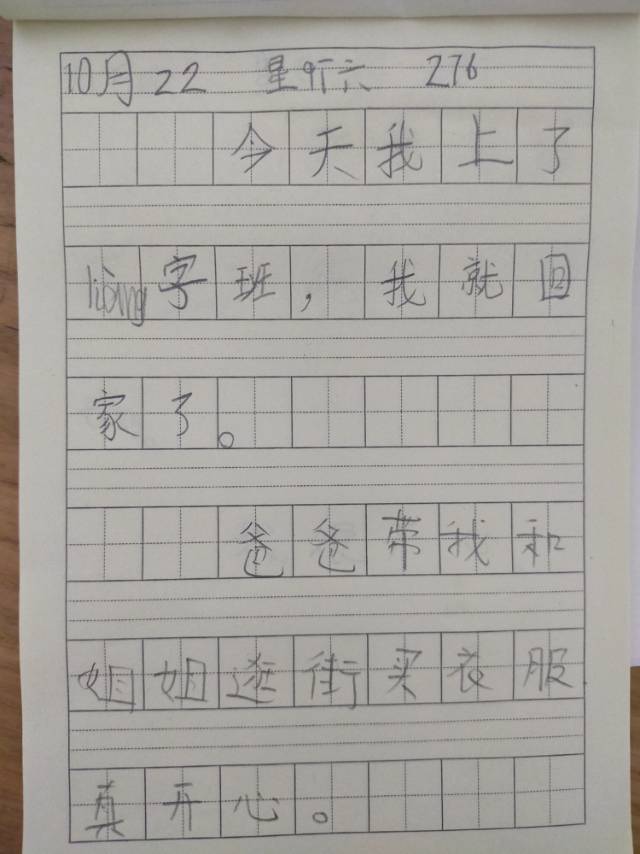 10月22 星期六 276
今天我上了
liàng字班，我就回
家了。
爸爸带我和
姐姐逛街买衣服
真开心。